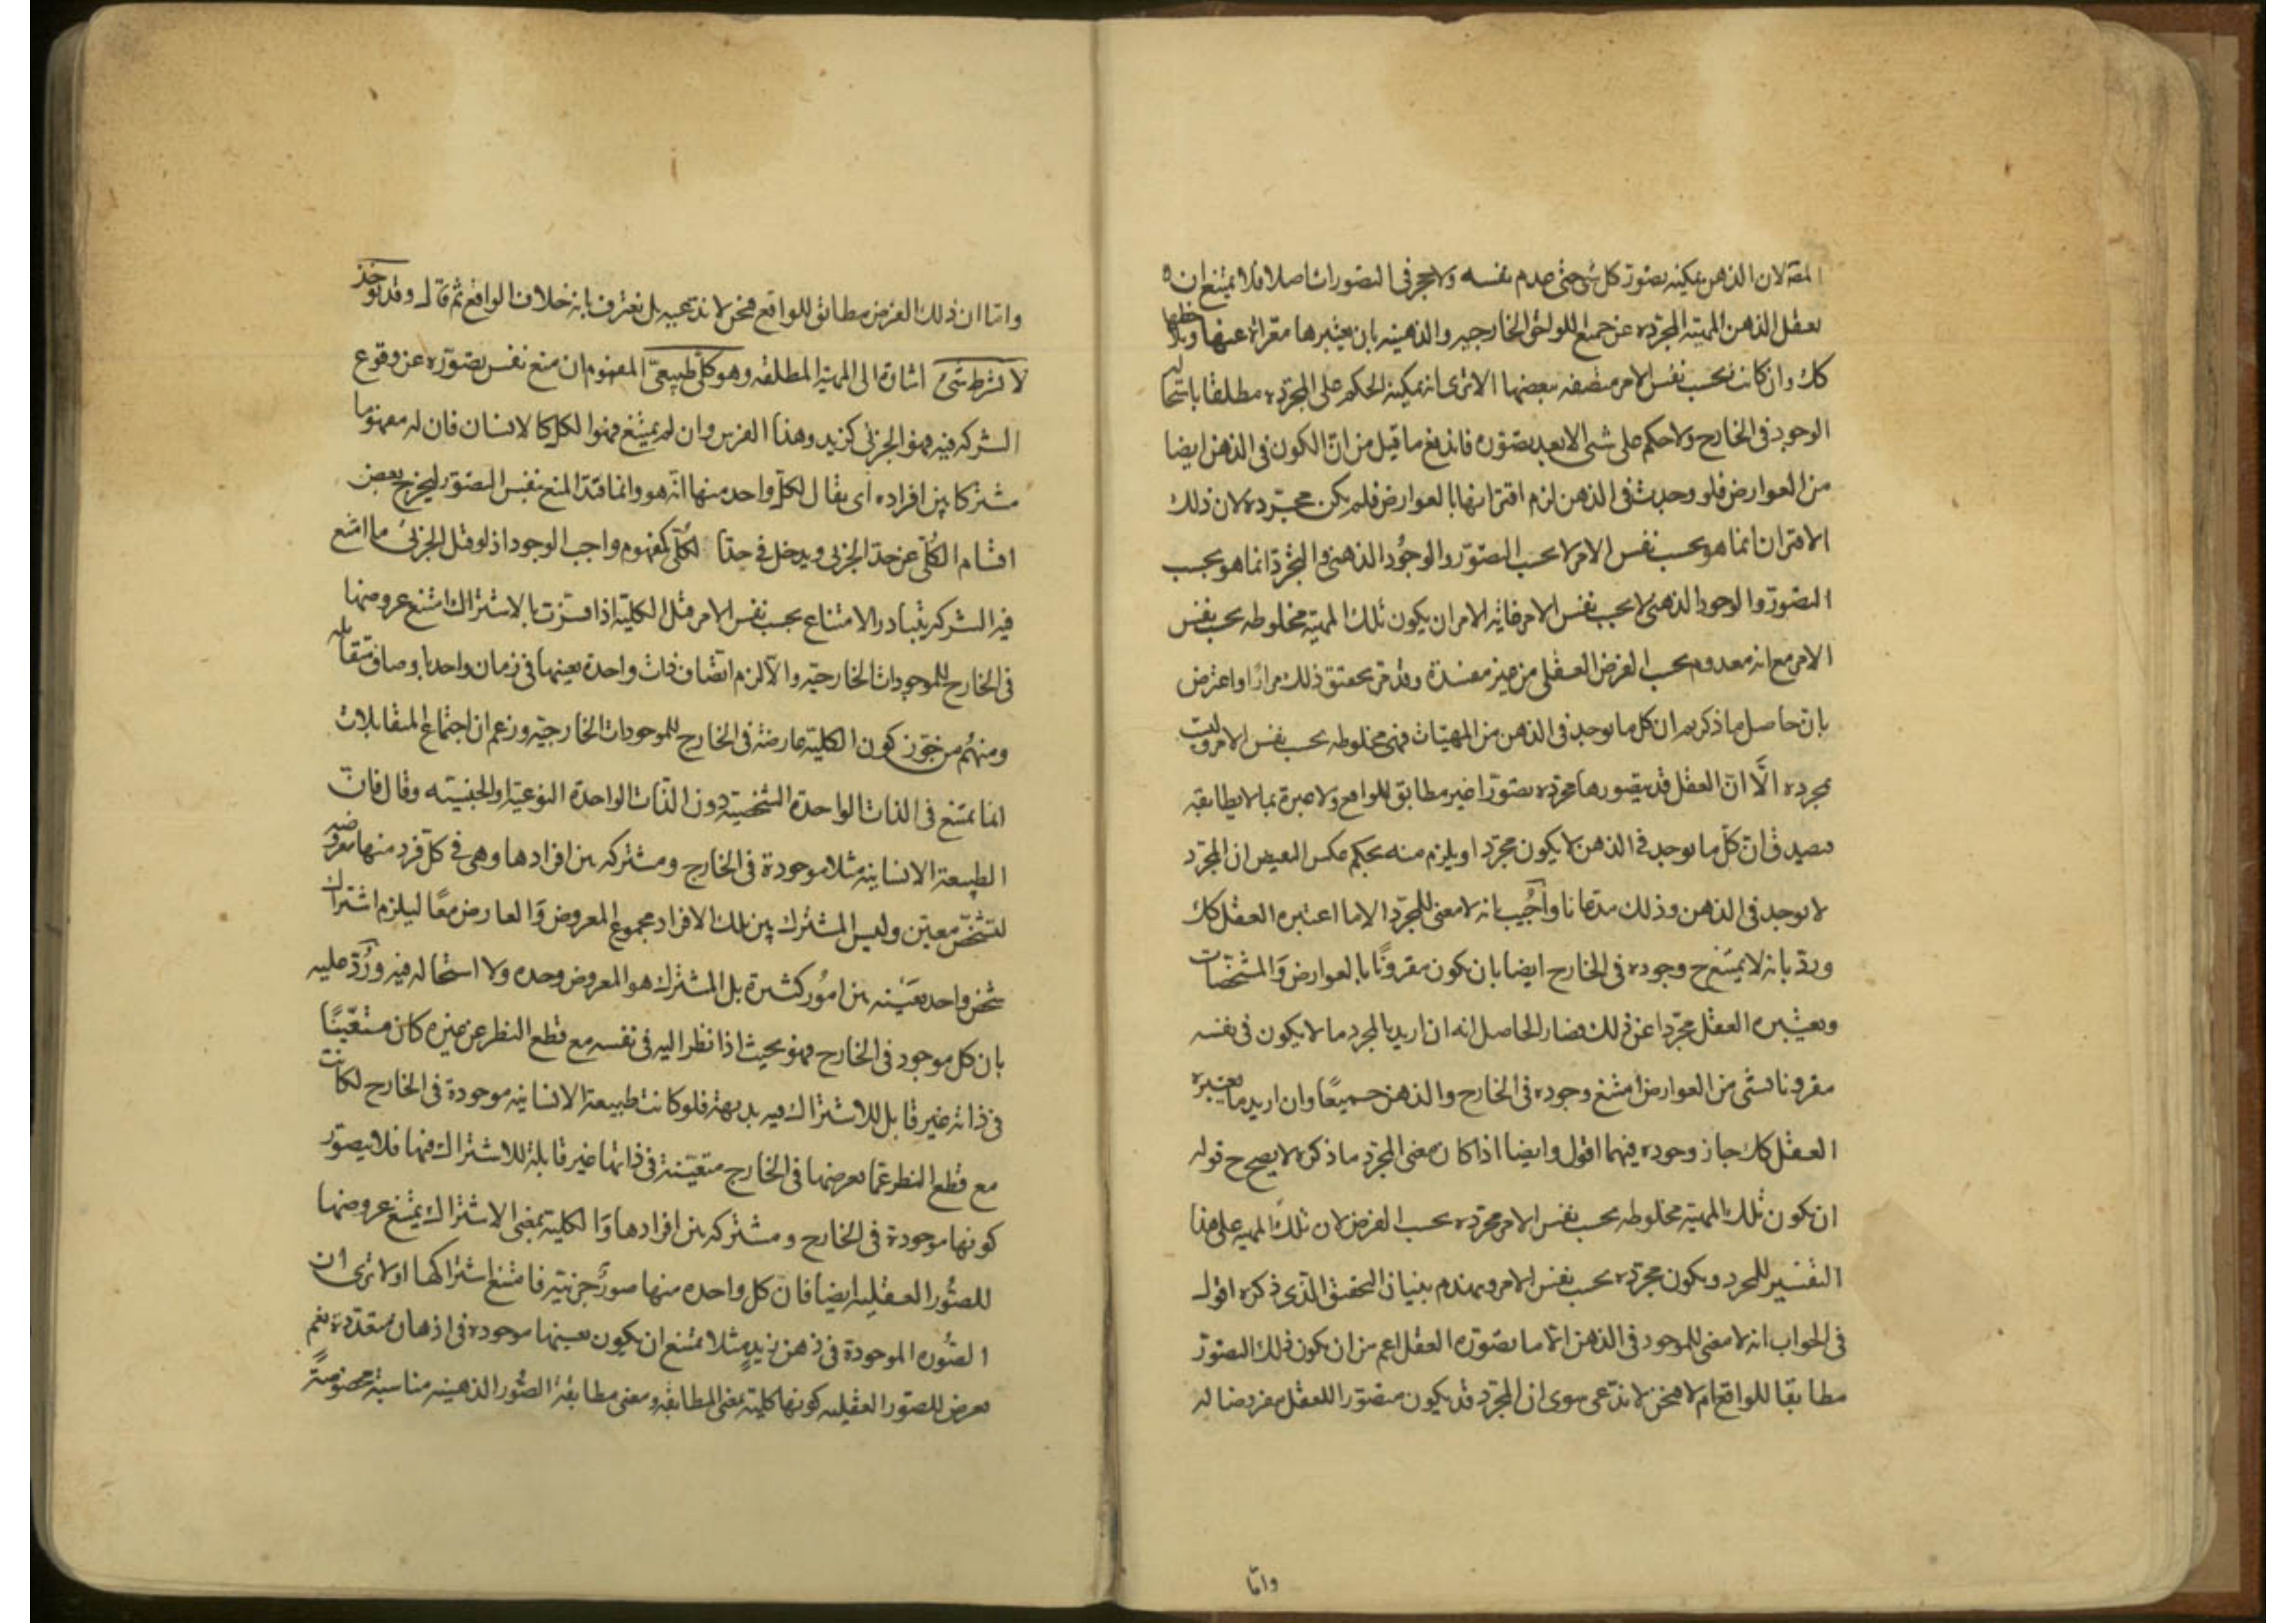 المتة لان الذهن يمكنه تصور كل شئ حتى عدم نفسه ولا حجر فى التصورات اصلا فلا يمتنع ان
تعقل الذهن المهية المجردة عن جميع اللواحق الخارجيه والذهنيه بان يعتبرها معراة عنها ويلاحظها
كك وان كانت بحسب نفس الامر متصفه ببعضها الا ترى انه يمكنه الحكم على المجرده مطلقا باستحالة
الوجود فى الخارج ولا حكم على شئ الا بعد تصوره فاندفع ما قيل من ان الكون فى الذهن ايضا
من العوارض فلو وجدت فى الذهن لزم اقترانها بالعوارض فلم يكن مجرده لان ذلك
الاقتران انما هو بحسب نفس الامر لا بحسب التصوّر والوجُود الذهنى والتجرّد انما هو بحسب
التصوّر والوجود الذهنى لا بحسب نفس الامر غاية الامر ان يكون تلك المهية مخلوطه بحسب نفس
الامر مع انه معدوم بحسب الفرض العقلى من غير مفسدة وقد مرّ تحقيق ذلك مرارًا واعترض
بان حاصل ما ذكرتم ان كل ما يوجد فى الذهن من المهيات فهى مخلوطه بحسب نفس الامر وليست
مجرده الّا انّ العقل قد يتصورها مجرده تصوّرا غير مطابق للواقع ولا عبرة بما لا يطابقه
فصدق انّ كلّ ما يوجد فى الذهن لا يكون مجرّدا ويلزم منه بحكم عكس النقيض ان المجرّد
لا يوجد فى الذهن وذلك مدّعانا واُجيب بانه لا معنى للمجرّد الا ما اعتبره العقل كك
وردّ بانه لا يمتنع ح وجوده فى الخارج ايضا بان يكون مقرونًا بالعوارض وَالمشخّصات
ويعتبره العقل مجرّدا عن ذلك فصار الحاصل انه ان اريد بالمجرد ما لا يكون فى نفسه
مقرونا بشئ من العوارض امتنع وجوده فى الخارج والذهن جميعًا وان اريد ما يعتبره
العقل كك جاز وجوده فيهما اقول وايضا اذا كان معنى المجرّد ما ذكره لا يصح ح قوله
ان يكون تلك المهية مخلوطه بحسب نفس الامر مجرّده بحسب الفرض لان تلك المهيه على هذا
التفسير للمجرد ويكون مجرّده بحسب نفس الامر وينهدم بنيان التحقيق الّذى ذكره اقول
فى الجواب انه لا معنى للموجود فى الذهن الا ما يتصوّره العقل اعم من ان يكون ذلك التصوّر
مطابقا للواقع ام لا فنحن لا ندّعى سوى ان المجرّد قد يكون متصوّرا للعقل مفروضا له
وامّا
وامّا ان ذلك الفرض مطابق للواقع فنحن لا ندعيه بل نعترف بانه خلاف الواقع ثم قال وقد يؤخذ
لا بشرط شئ اشارة الى المهية المطلقه وهو كلّى طبيعىّ المفهوم ان منع نفس تصوّره عن وقوع
الشركه فيه فهو الجزئى كزيد وهذا الفرس وان لم يمتنع فهو الكلى كالانسان فان له مفهومًا
مشتركا بين افراده اى يقال لكلّ واحد منها انّه هو وانما قيّد المنع بنفس التصوّر ليخرج بعض
اقسام الكُلّى عن حدّ الجزئى ويدخل فى حدّ الكُلّى كمفهوم واجب الوجود اذ لو قيل الجزئى ما امتنع
فيه الشركه يتبادر الامتناع بحسب نفس الامر قيل الكلية اذا فسّرت بالاشتراك امتنع عروضها
فى الخارج للموجودات الخارجيّه والّا لزم اتصاف ذات واحدة بعينها فى زمان واحد باوصاف متقابله
ومنهُم من جوّز كون الكلية عارضة فى الخارج للموجودات الخارجيّه وزعم ان اجتماع المتقابلات
انما يمتنع فى الذات الواحدة الشخصيّة دون الذّات الواحدة النوعيّة والجنسيّه وقال فانّ
الطبيعة الانسانيه مثلا موجودة فى الخارج ومشتركه بين افرادها وهى فى كلّ فرد منها معروضه
لتشخّص معيّن وليس المشترك بين تلك الافراد مجموع المعروض وَالعارض معًا ليلزم اشتراك
شخص واحد بعَينه بين امُور كثيرة بل المشترك هو المعروض وحده ولا استحاله فيه ورُدّ عليه
بان كل موجود فى الخارج فهو بحيث اذا نظر اليه فى نفسه مع قطع النظر عن غيره كان متعيّنًا
فى ذاته غير قابل للاشتراك فيه بديهة فلو كانت طبيعة الانسانيه موجودة فى الخارج لكانت
مع قطع النظر عمّا يعرضها فى الخارج متعيّنة فى ذاتها غير قابلة للاشتراك فيها فلا يتصوّر
كونها موجودة فى الخارج ومشتركه بين افرادها وَالكلية بمعنى الاشتراك يمتنع عروضها
للصُّور العقليه ايضا فانّ كل واحده منها صورَة جزئيّه فامتنع اشتراكها اولا ترى ان
الصُّوره الموجودة فى ذهن زيدٍ مثلا تمتنع ان يكون بعينها موجوده فى اذهان متعدّدة نعم
يعرض للصّور العقليه كونها كلية بمعنى المطابقه ومعنى مطابقة الصُّور الذهنيه مناسبة مخصُوصة